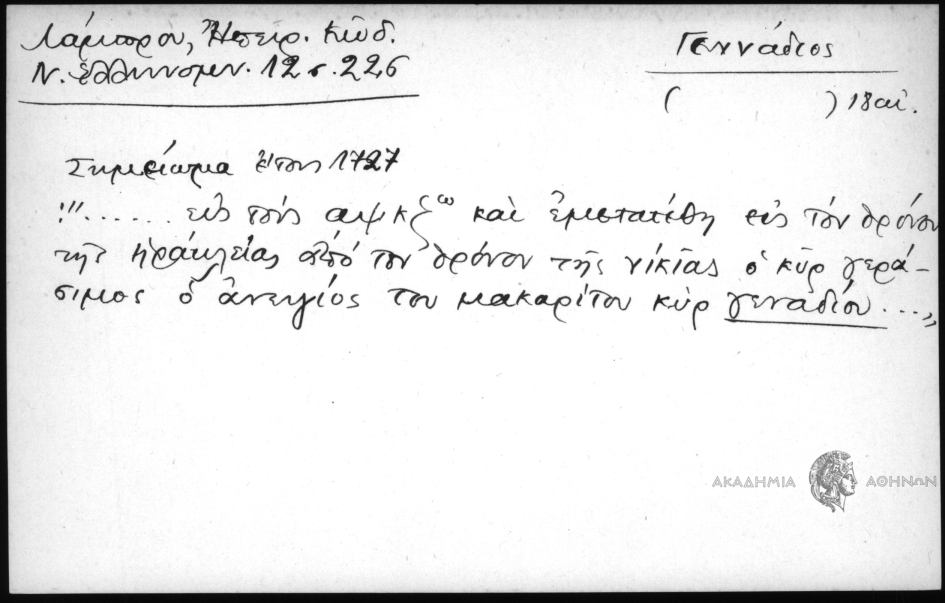 Λάμπρου, Ἠπειρ. Κώδ.
Ν. Ἑλληνομν. 12 σ. 226
Γεννάδιος
( ) 18 αἰ.
Σημείωμα ἔτους 1727
"...... εἰς τοὺς αψκζω καὶ ἐμετατέθη εἰς τὸν θρόνον
τῆς ἡρακλείας ἀπὸ τὸν θρόνον τῆς νικίας ὁ κὺρ γερά-
σιμος ὁ ἀνεψιός του μακαρίτου κὺρ γεναδίου ...„
ΑΚΑΔΗΜΙΑ ΑΘΗΝΩΝ